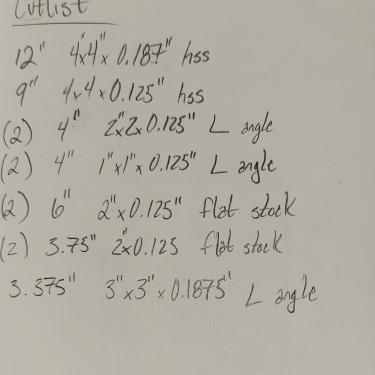 Cutlist
12" 4"x4"x 0.187" hss
9" 4x4x0.125" hss
(2) 4" 2"x2x0.125" L angle
(2) 4" 1"x1"x 0.125" L angle
(2) 6" 2"x0.125" flat stock
(2) 3.75" 2"x0.125 flat stock
3.375" 3"x3"x0.1875" L angle